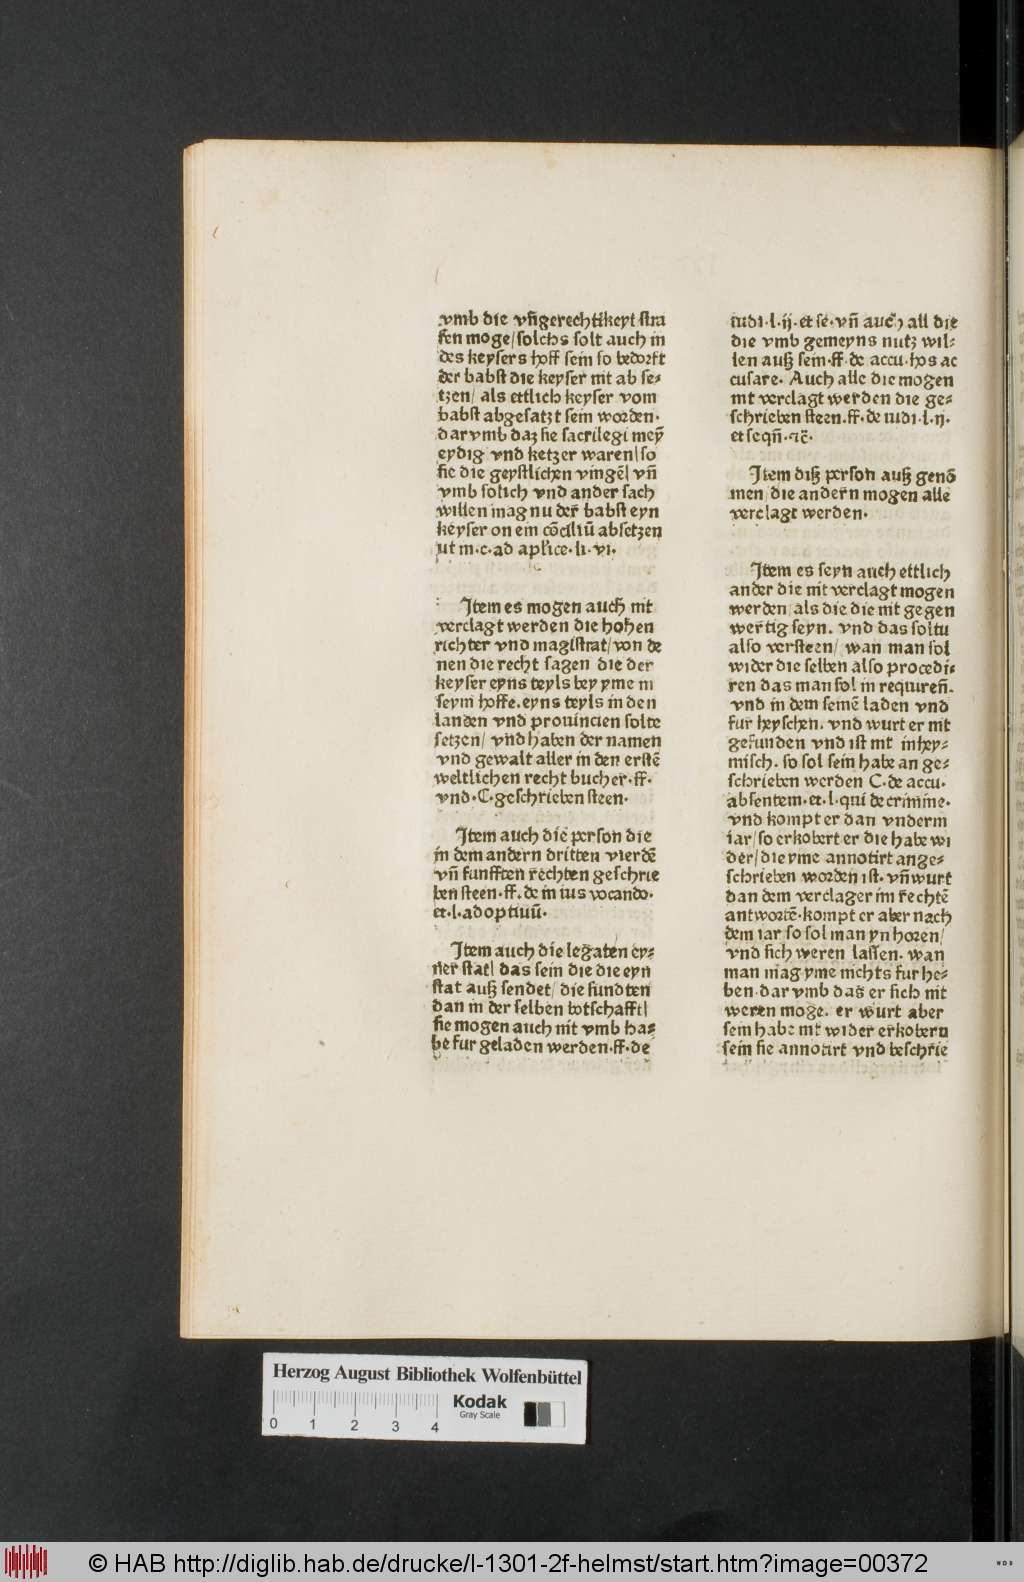 vmb die vn̄gerechtikeyt stra
fen moge/ solchs solt auch in
des keysers hoff sein so bedorft
der babst die keyser nit ab se⸗
tzen/ als ettlich keyser vom
babst abgesatzt sein worden·
darvmb daz sie sacrilegi meȳ
eydig vnd ketzer waren/ so
sie die geystlichen vingē/ vn̄
vmb solich vnd ander sach
willen mag nu der babst eyn
keyser on ein cōciliū absetzen
ut in·c·ad apl'ice·li·vi·
Item es mogen auch nit
verclagt werden die hohen
richter vnd magistrat/ von de
nen die recht sagen die der
keyser eyns teyls bey yme in
seym hoffe. eyns teyls in den
landen vnd prouincien solte
setzen/ vnd haben der namen
vnd gewalt aller in den erstē
weltlichen recht bucher·ff·
vnd·C·geschrieben steen·
Item auch die person die
in dem andern dritten vierdē
vn̄ funfften rechten geschrie
ben steen·ff·de in ius vocando·
et·l·adoptiuū·
Item auch die legaten ey⸗
ner stat/ das sein die die eyn
stat auß sendet/ die fundten
dan in der selben botschafft/
sie mogen auch nit vmb ha⸗
be fur geladen werden·ff·de
iudi·l·ij·et se·vn̄ auch all die
die vmb gemeyns nutz wil⸗
len auß sein·ff·de accu·hos ac
cusare. Auch alle die mogen
nit verclagt werden die ge⸗
schrieben steen.ff·de iudi·l·ij·
et seqn̄·⁊c̄·
Item diß person auß genō
men/ die andern mogen alle
verclagt werden·
Item es seyn auch ettlich
ander die nit verclagt mogen
werden/ als die die nit gegen
wertig seyn. vnd das soltu
also versteen/ wan man sol
wider die selben also procedi⸗
ren das man sol in requiren̄.
vnd in dem seinē laden vnd
fur heyschen. vnd wurt er nit
gefunden vnd ist nit inhey⸗
misch. so sol sein habe an ge⸗
schrieben werden C·de accu·
absentem·et·l·qui de crimine·
vnd kompt er dan vnderm
iar/ so erkobert er die habe wi
der/ die yme annotirt ange⸗
schrieben worden ist·vn̄ wurt
dan dem verclager im rechtē
antwortē·kompt er aber nach
dem iar so sol man yn horen/
vnd sich weren lassen· wan
man mag yme nichts fur he⸗
ben·dar vmb das er sich nit
weren moge. er wurt aber
sein habe nit wider erkobern
sein sie annotirt vnd beschrie
Herzog August Bibliothek Wolfenbüttel
Kodak
Gray Scale
0 1 2 3 4
© HAB http://diglib.hab.de/drucke/l-1301-2f-helmst/start.htm?image=00372
WDB